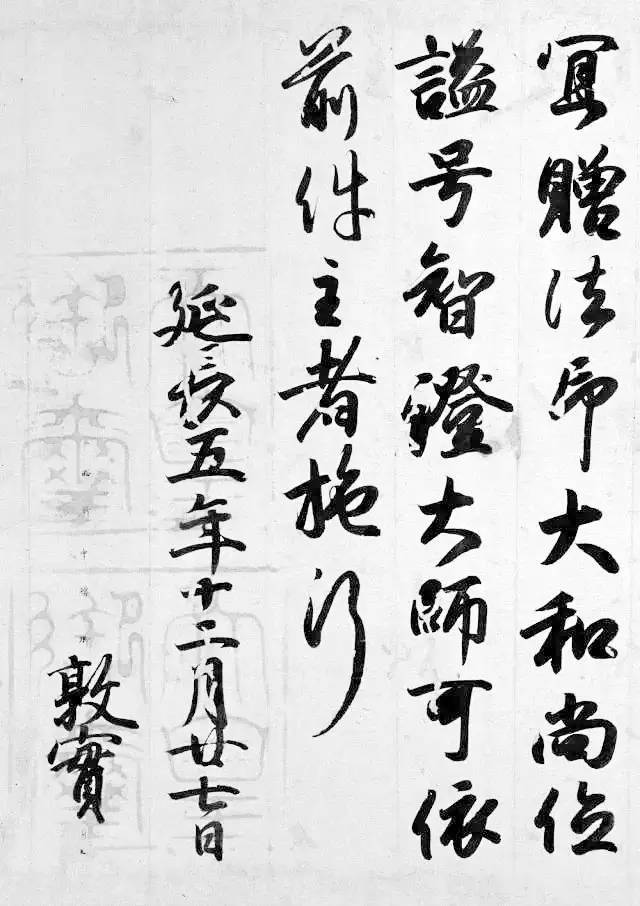 冝贈法印大和尚位
謚号智證大師可依
前件主者施行
延長五年十二月廿七日
敦實